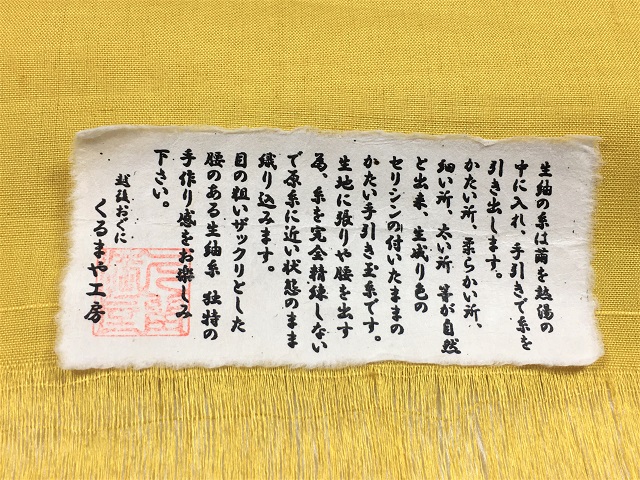 生紬の糸は繭を熱湯の
中に入れ、手引きで糸を
引き出します。
かたい所、柔らかい所、
細い所、太い所 等が自然
と出来、生成り色の
セリシンの付いたままの
かたい手引き玉糸です。
生地に張りや腰を出す
為、糸を完全精練しない
で原糸に近い状態のまま
織り込みます。
目の粗いザックリとした
腰のある生紬糸 独特の
手作り感をお楽しみ
下さい。
越後おぐに
くるまや工房